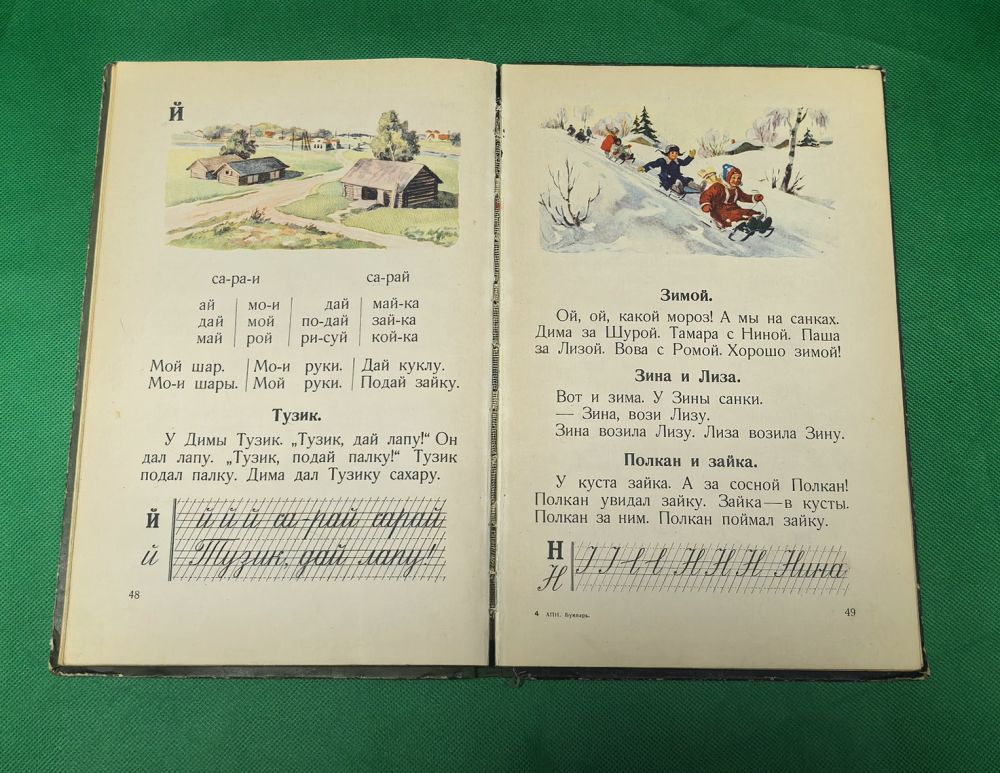 Й
са-ра-и са-рай
ай мо-и дай май-ка
дай мой по-дай зай-ка
май рой ри-суй кой-ка
Мой шар. Мо-и руки. Дай куклу.
Мо-и шары. Мой руки. Подай зайку.
Тузик.
У Димы Тузик. „Тузик, дай лапу!“ Он
дал лапу. „Тузик, подай палку!“ Тузик
подал палку. Дима дал Тузику сахару.
й й й й са-рай сарай
й Тузик, дай лапу!
48
Зимой.
Ой, ой, какой мороз! А мы на санках.
Дима за Шурой. Тамара с Ниной. Паша
за Лизой. Вова с Ромой. Хорошо зимой!
Зина и Лиза.
Вот и зима. У Зины санки.
— Зина, вози Лизу.
Зина возила Лизу. Лиза возила Зину.
Полкан и зайка.
У куста зайка. А за сосной Полкан!
Полкан увидал зайку. Зайка—в кусты.
Полкан за ним. Полкан поймал зайку.
Н
Н Н Н Н Нина
4 АПН. Букварь.
49